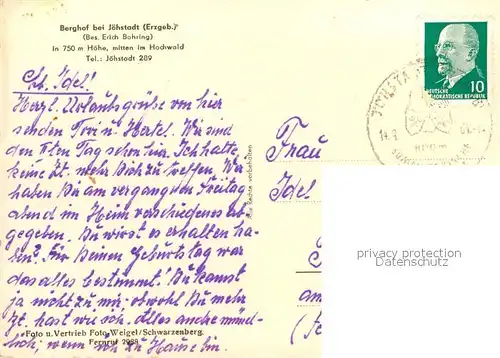 Berghof bei Jöhstadt (Erzgeb.)
(Bes. Erich Bohring)
in 750 m Höhe, mitten im Hochwald
Tel.: Jöhstadt 289
Lb. Idel!
Herzl. Urlaubsgrüße von hier
senden Toni u. Hertel. Wir sind
den Tag schon hier. Ich hatte
keine Zt. mehr Dich zu treffen. Wir
haben Dir am vergangenen Freitag
abend im Heim verschiedenes ab
gegeben. Du wirst es erhalten ha-
ben? Für Deinen Geburtstag war
das alles bestimmt. Du kannst
ja nicht zu mir - obwohl Du mehr
Zt. hast wie ich. Alles andre münd-
lich, wenn ich zu Hause bin.
Foto u. Vertrieb Foto Weigel/Schwarzenberg.
Fernruf 2988
Alle Rechte vorbehalten
Frau
Idel
DEUTSCHE
DEMOKRATISCHE REPUBLIK
10
privacy protection
Datenschutz